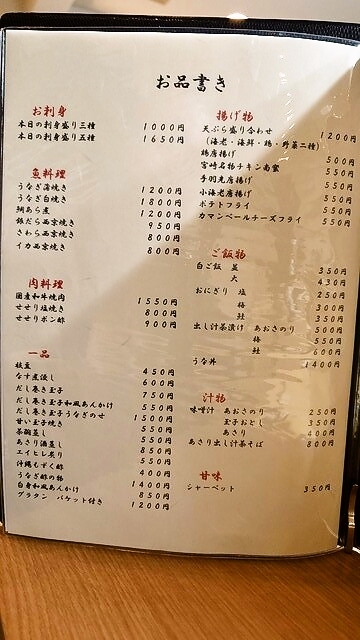 お品書き
お刺身
本日の刺身盛り三種 1000円
本日の刺身盛り五種 1650円
魚料理
うなぎ蒲焼き 1200円
うなぎ白焼き 1800円
鯛あら煮 1200円
銀だら西京焼き 950円
さわら西京焼き 800円
イカ西京焼き 800円
肉料理
国産和牛焼肉 1550円
せせり塩焼き 800円
せせりポン酢 900円
一品
枝豆 450円
なす煮浸し 600円
だし巻き玉子 750円
だし巻き玉子和風あんかけ 550円
だし巻き玉子うなぎのせ 1500円
甘い玉子焼き 550円
茶碗蒸し 550円
あさり酒蒸し 850円
エイヒレ炙り 550円
沖縄もずく酢 400円
うなぎ酢の物 1400円
白身和風あんかけ 850円
グラタン バケット付き 1200円
揚げ物
天ぷら盛り合わせ 1200円
(海老・海鮮・鶏・野菜二種)
鶏唐揚げ 500円
宮崎名物チキン南蛮 550円
手羽先唐揚げ 550円
小海老唐揚げ 550円
ポテトフライ 550円
カマンベールチーズフライ 550円
ご飯物
白ご飯 並 350円
大 430円
おにぎり 塩 250円
梅 300円
鮭 350円
出し汁茶漬け あおさのり 500円
梅 550円
鮭 600円
うな丼 1400円
汁物
味噌汁 あおさのり 250円
玉子おとし 350円
あさり 400円
あさり出し汁茶そば 800円
甘味
シャーベット 350円